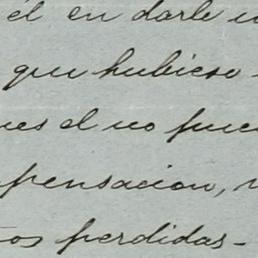 él en darle u
que hubiese
ues el no fue
pensacion,
os perdidas-